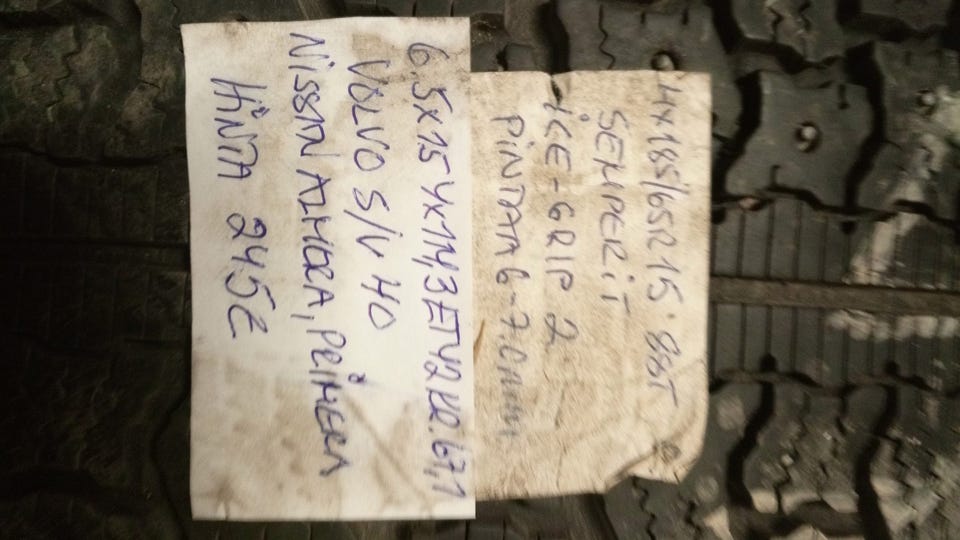 4x185/65R15 88T
SEMPERIT
iCE-GRIP 2
PINTAA 6-7.0mm
6.5x15 4x114,3 ET42 KR.67,1
VOLVO S/V 40
NISSAN ALMERA, PRiMERA
HiNTA 245€